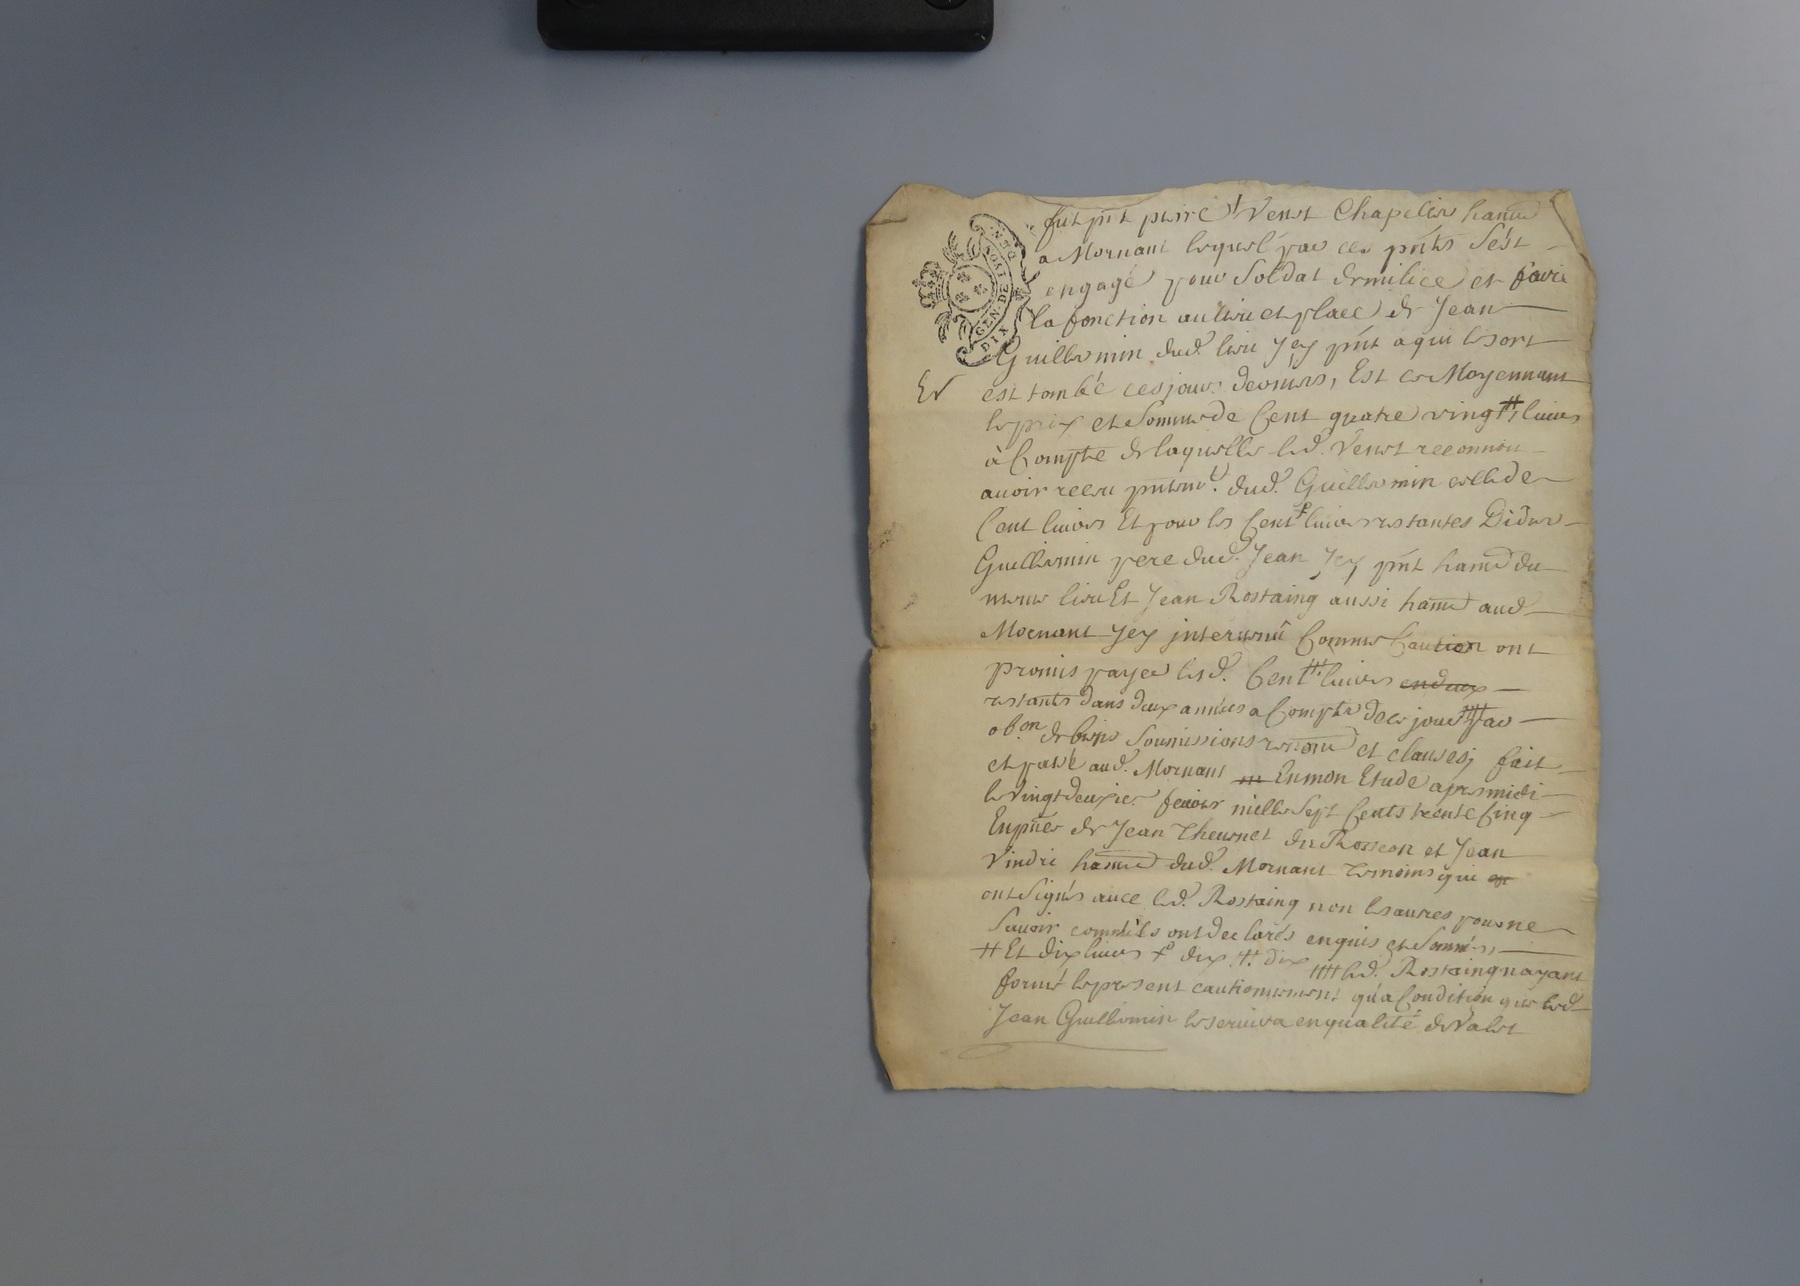 GEN. DE LYON
DIX DEN.
fut pn̄t pierre Venet Chapelier hant̄
a Mornant lequel par ces pn̄tes s'est
engagé pour Soldat de milice et faire
la fonction au lieu et place de Jean
Guillermin dud. lieu Jcy pn̄t a qui le sort
est tombé ces jours derniers, Est ce Moyennant
Er
le prix et Somme de Cent quatre vingt # livres
à Compte de laquelle led. Venet reconnoit
avoir recu pn̄temt. dud. Guillermin celle de
Cent livres Et pour les Cent livres restantes Didier
Guillermin pere dud. Jean Jcy pn̄t hant̄ du
meme lieu Et Jean Rostaing aussi hant̄ aud.
Mornant Jcy intervenu Comme Caution ont
promis payer lesd. Cent # livres en deux
restants dans deux années a Compter de ce jour #### par
obon de biens Soumissions renonc et clauses, fait
et passé aud. Mornant En mon Etude apres midi
le vingtdeuxie fevrier mille Sept Cents trente Cinq
En pn̄ces de Jean Thevenet du Rosseon et Jean
Vindri hant̄ dud. Mornant temoins qui
ont Signés avec led. Rostaing non les autres pour ne
Savoir comm'ils ont declarés enquis et Sommés
# Et dix livres dix # dix #### led. Rostaing nayant
formé le present cautionnement qu'a Condition que led.
Jean Guillermin le servira en qualité de Valet